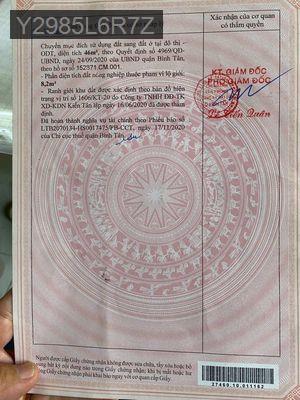 Y2985L6R7Z
Xác nhận của cơ quan
có thẩm quyền
Chuyển mục đích sử dụng đất sang đất ở tại đô thị -
ODT, diện tích 46m², theo Quyết định số 4969/QĐ-
UBND, ngày 24/09/2020 của UBND quận Bình Tân,
hồ sơ số 152571.CM.001.
- Phần diện tích đất nông nghiệp thuộc phạm vi lộ giới:
8,2m²
- Ranh giới khu đất được xác định theo bản đồ hiện
trạng vị trí số 1606/KT-20 do Công ty TNHH ĐĐ-TK
XD-KDN Kiến Tân lập ngày 16/06/2020 đã được thẩm
định.
- Đã hoàn thành nghĩa vụ tài chính theo Phiếu báo số
LTB2070134-HS0017475/PB-CCT, ngày 17/11/2020
của Chi cục thuế quận Bình Tân.
KT. GIÁM ĐỐC
PHÓ GIÁM ĐỐC
Người được cấp Giấy chứng nhận không được sửa chữa, tẩy xóa hoặc bổ
sung bất kỳ nội dung nào trong Giấy chứng nhận; khi bị mất hoặc hư
hỏng Giấy chứng nhận phải khai báo ngay với cơ quan cấp Giấy.
27460.10.011162